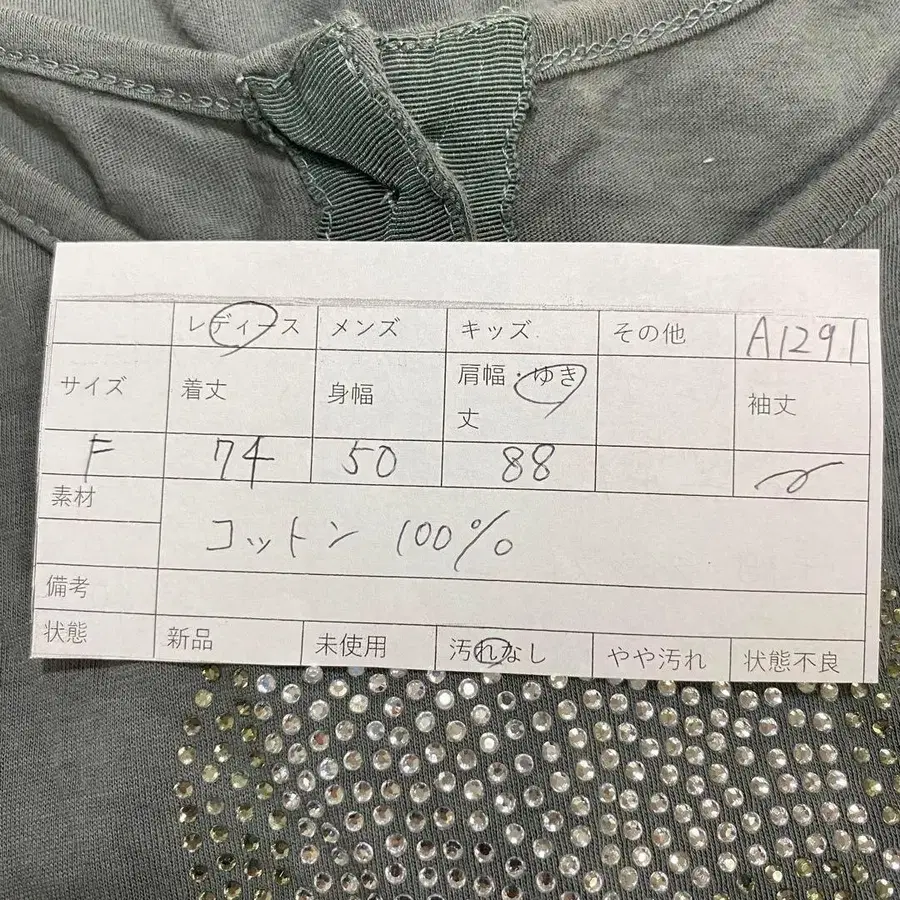 レディース メンズ キッズ その他 A1291
サイズ 着丈 身幅 肩幅・ゆき丈 袖丈
F 74 50 88
素材 コットン 100%
備考
状態 新品 未使用 汚れなし やや汚れ 状態不良